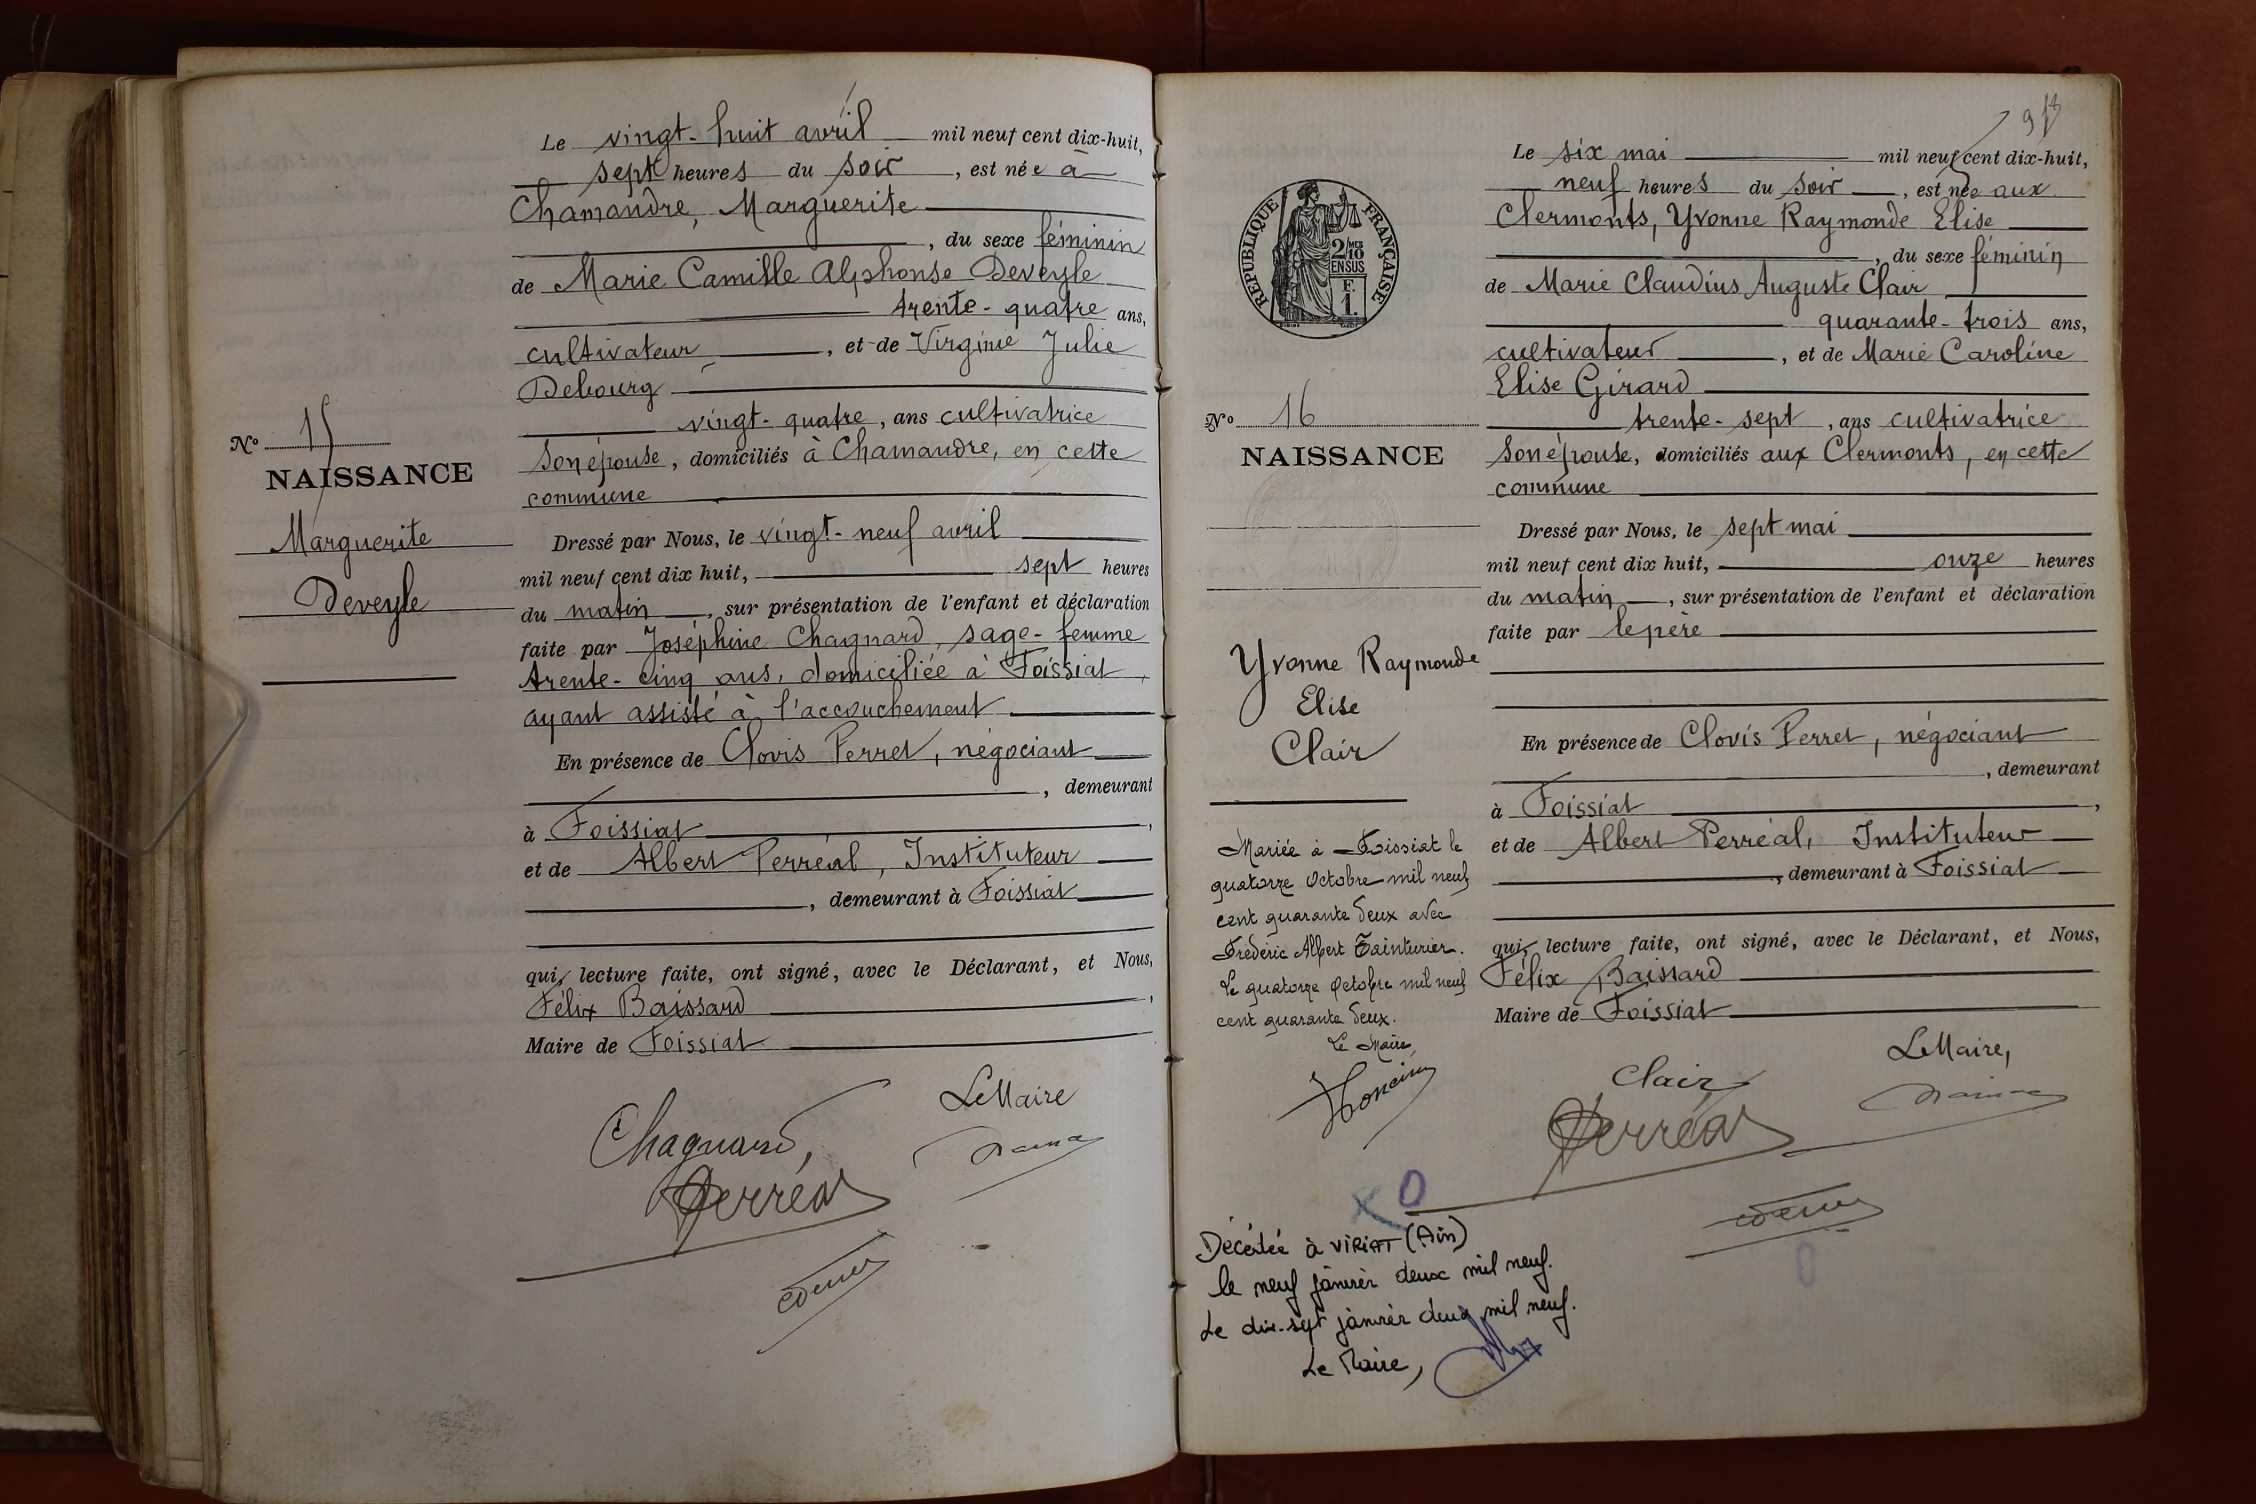 Le vingt-huit avril mil neuf cent dix-huit,
sept heures du soir, est née à
Chamandre, Marguerite
, du sexe féminin
de Marie Camille Alphonse Deveyle
trente-quatre ans,
cultivateur, et de Virginie Julie
Debourg
vingt-quatre, ans cultivatrice
Son épouse, domiciliés à Chamandre, en cette
commune
No 15
NAISSANCE
Marguerite
Deveyle
Dressé par Nous, le vingt-neuf avril
mil neuf cent dix huit, sept heures
du matin, sur présentation de l'enfant et déclaration
faite par Joséphine Chagnard, sage-femme
trente-cinq ans, domiciliée à Foissiat,
ayant assisté à l'accouchement
En présence de Clovis Perret, négociant
, demeurant
à Foissiat,
et de Albert Perréal, Instituteur
, demeurant à Foissiat
qui, lecture faite, ont signé, avec le Déclarant, et Nous,
Félix Baissard,
Maire de Foissiat
Le Maire
Chagnard,
Perréal
Le six mai mil neuf cent dix-huit,
neuf heures du soir, est née aux
Clermonts, Yvonne Raymonde Elise
, du sexe féminin
de Marie Claudius Auguste Clair
quarante-trois ans,
cultivateur, et de Marie Caroline
Elise Girard
trente-sept, ans cultivatrice
Son épouse, domiciliés aux Clermonts, en cette
commune
RÉPUBLIQUE FRANÇAISE
2/10 MES
EN SUS
F.
1.
No 16
NAISSANCE
Yvonne Raymonde
Elise
Clair
Dressé par Nous, le sept mai
mil neuf cent dix huit, onze heures
du matin, sur présentation de l'enfant et déclaration
faite par le père
En présence de Clovis Perret, négociant
, demeurant
à Foissiat,
et de Albert Perréal, Instituteur
, demeurant à Foissiat
qui, lecture faite, ont signé, avec le Déclarant, et Nous,
Félix Baissard
Maire de Foissiat
Le Maire,
Clair
Perréal
Mariée à Foissiat le
quatorze Octobre mil neuf
cent quarante deux avec
Frédéric Albert Tainturier.
Le quatorze Octobre mil neuf
cent quarante deux.
Le Maire,
Décédée à VIRIAT (Ain)
le neuf janvier deux mil neuf.
Le dix-sept janvier deux mil neuf.
Le Maire,